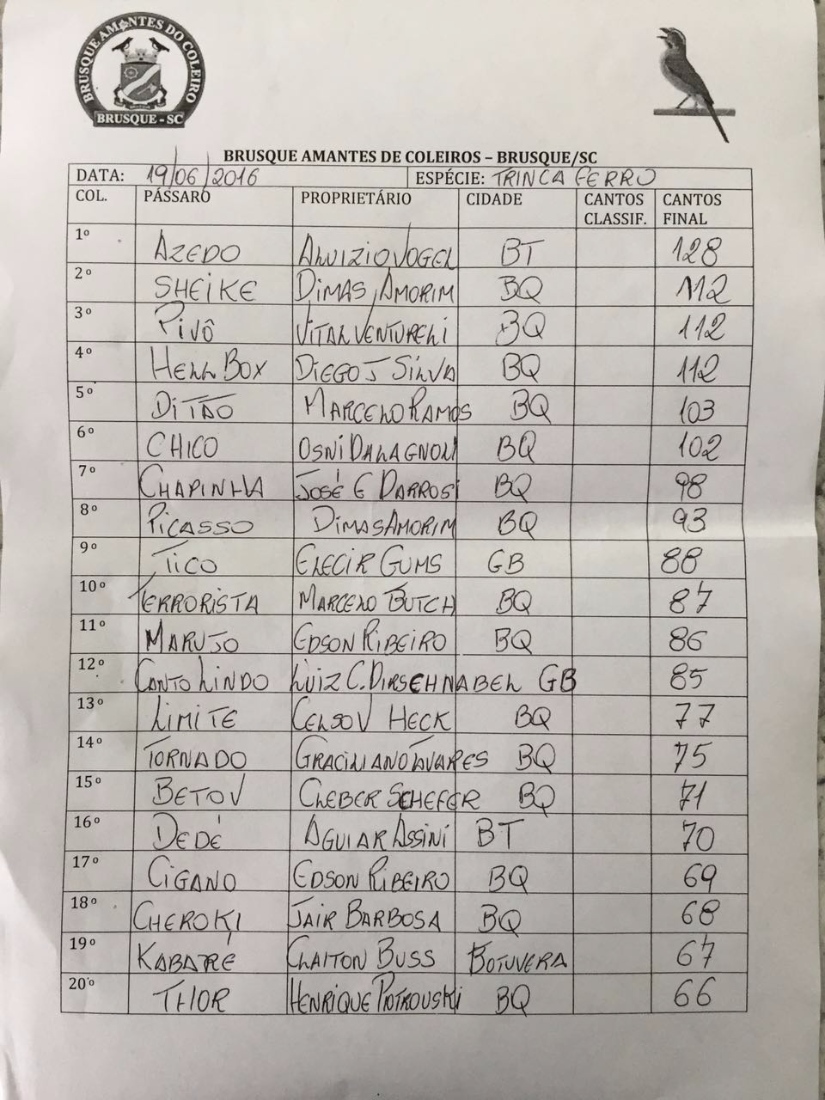 BRUSQUE AMANTES DO COLEIRO
BRUSQUE - SC
BRUSQUE AMANTES DE COLEIROS – BRUSQUE/SC
DATA: 19/06/2016 ESPÉCIE: TRINCA FERRO
COL. PÁSSARO PROPRIETÁRIO CIDADE CANTOS CLASSIF. CANTOS FINAL
1º AZEDO ALUIZIO VOGEL BT 128
2º SHEIKE DIMAS AMORIM BQ 112
3º PIVÔ VITAL VENTURELLI BQ 112
4º HELL BOX DIEGO J SILVA BQ 112
5º DITÃO MARCELO RAMOS BQ 103
6º CHICO OSNI DALAGNOLI BQ 102
7º CHAPINHA JOSÉ C DARROSI BQ 98
8º PICASSO DIMAS AMORIM BQ 93
9º TICO ELECIR GUMS GB 88
10º TERRORISTA MARCELO BUTCH BQ 87
11º MARUJO EDSON RIBEIRO BQ 86
12º CANTO LINDO LUIZ C. DIRSCHNABEL GB 85
13º LIMITE CELSO V HECK BQ 77
14º TORNADO GRACILIANO TAVARES BQ 75
15º BETOV CLEBER SCHEFER BQ 71
16º DEDÉ AGUIAR ASSINI BT 70
17º CIGANO EDSON RIBEIRO BQ 69
18º CHEROKI JAIR BARBOSA BQ 68
19º KABARÉ CLAITON BUSS BOTUVERA 67
20º THOR HENRIQUE PIOTROUSKI BQ 66